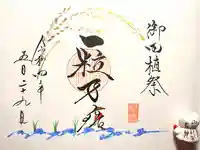 御田植祭
一粒万倍
令和四年
五月二十九日